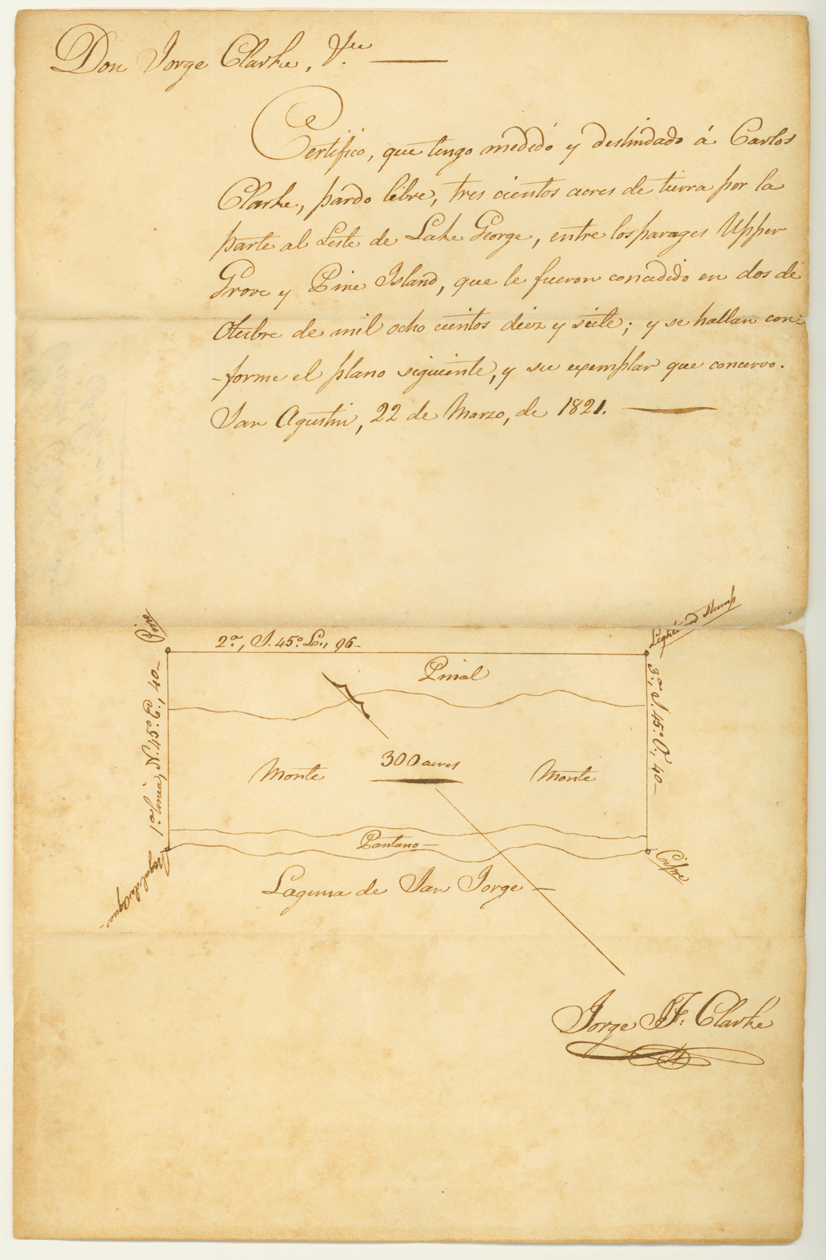 Don Jorge Clarke, &ce
Certifico, que tengo medido y deslindado á Carlos
Clarke, pardo libre, tres cientos acres de tierra por la
parte al Leste de Lake George, entre los parages Upper
Grove y Pine Island, que le fueron concedido en dos de
Otubre de mil ocho cientos diez y siete; y se hallan con-
-forme el plano siguiente, y su exemplar que concervo.
San Agustin, 22 de Marzo, de 1821.
Pino
2a, S. 45° L., 96-
Pinial
1a linea, N. 45° E., 40-
3a, S. 45° O., 40-
300 acres
Monte
Monte
Pantano
Cipre
Laguna de San Jorge
Jorge J. F. Clarke